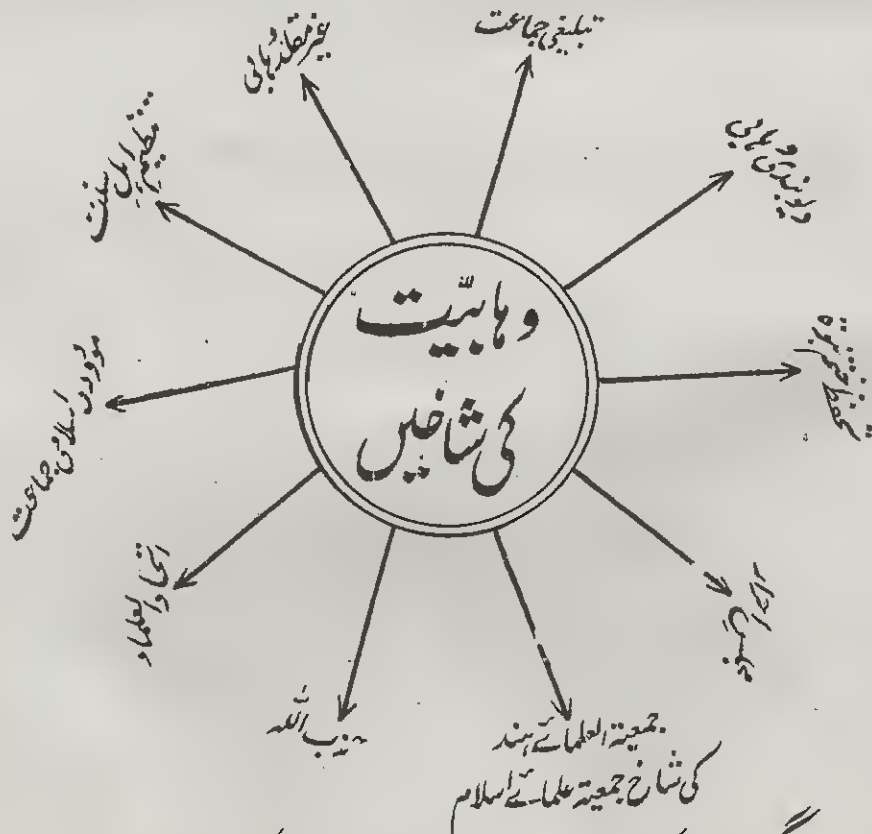 وہابیّت
کی شاخیں
تبلیغی جماعت
دیوبندی وہابی
تحفظ ختم نبوۃ
مجلس احرار
جمعیۃ العلمائے ہند
کی شاخ جمعیۃ علمائے اسلام
حزب اللہ
اتحاد العلماء
مودودی اسلامی جماعت
تنظیم اہل سنت
غیر مقلد وہابی